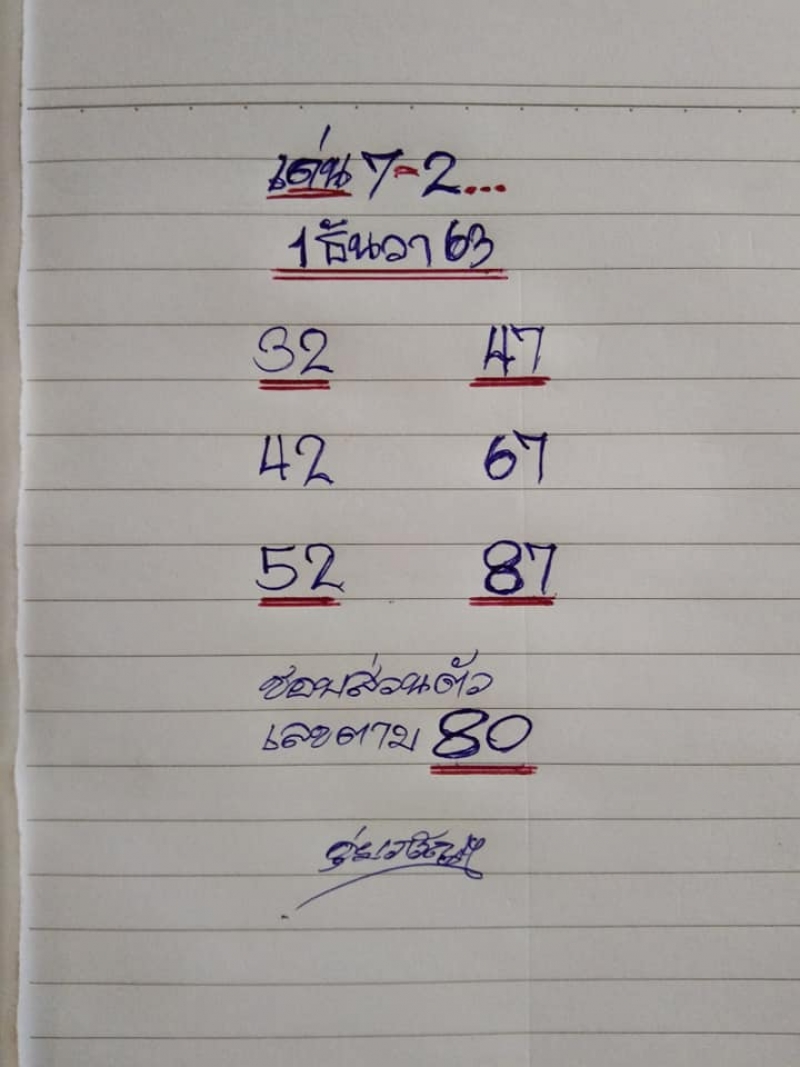 เด่น 7-2...
1 ธันวา 63
32 47
42 67
52 87
ชอบส่วนตัว
เลขตาม 80